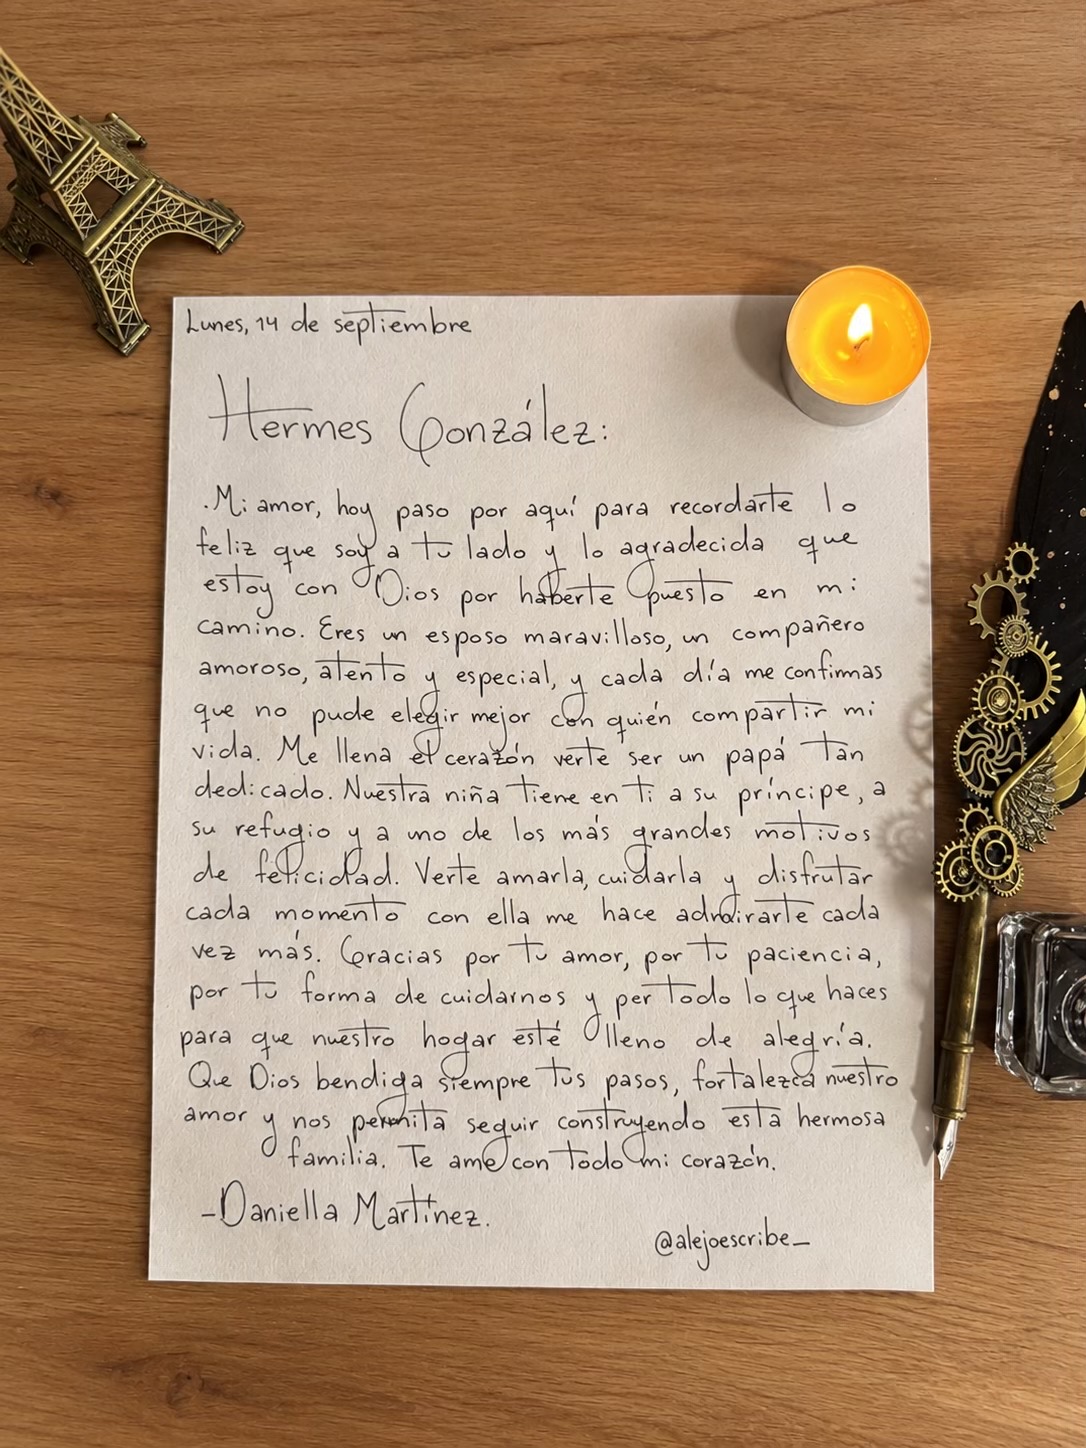 Lunes, 14 de septiembre
Hermes González:
.Mi amor, hoy paso por aquí para recordarte lo
feliz que soy a tu lado y lo agradecida que
estoy con Dios por haberte puesto en mi
camino. Eres un esposo maravilloso, un compañero
amoroso, atento y especial, y cada día me confirmas
que no pude elegir mejor con quién compartir mi
vida. Me llena el cerazón verte ser un papá tan
dedicado. Nuestra niña tiene en ti a su príncipe, a
su refugio y a uno de los más grandes motivos
de felicidad. Verte amarla, cuidarla y disfrutar
cada momento con ella me hace admirarte cada
vez más. Gracias por tu amor, por tu paciencia,
por tu forma de cuidarnos y per todo lo que haces
para que nuestro hogar esté lleno de alegría.
Que Dios bendiga siempre tus pasos, fortalezca nuestro
amor y nos permita seguir construyendo esta hermosa
familia. Te ame con todo mi corazón.
-Daniella Martínez.
@alejoescribe_